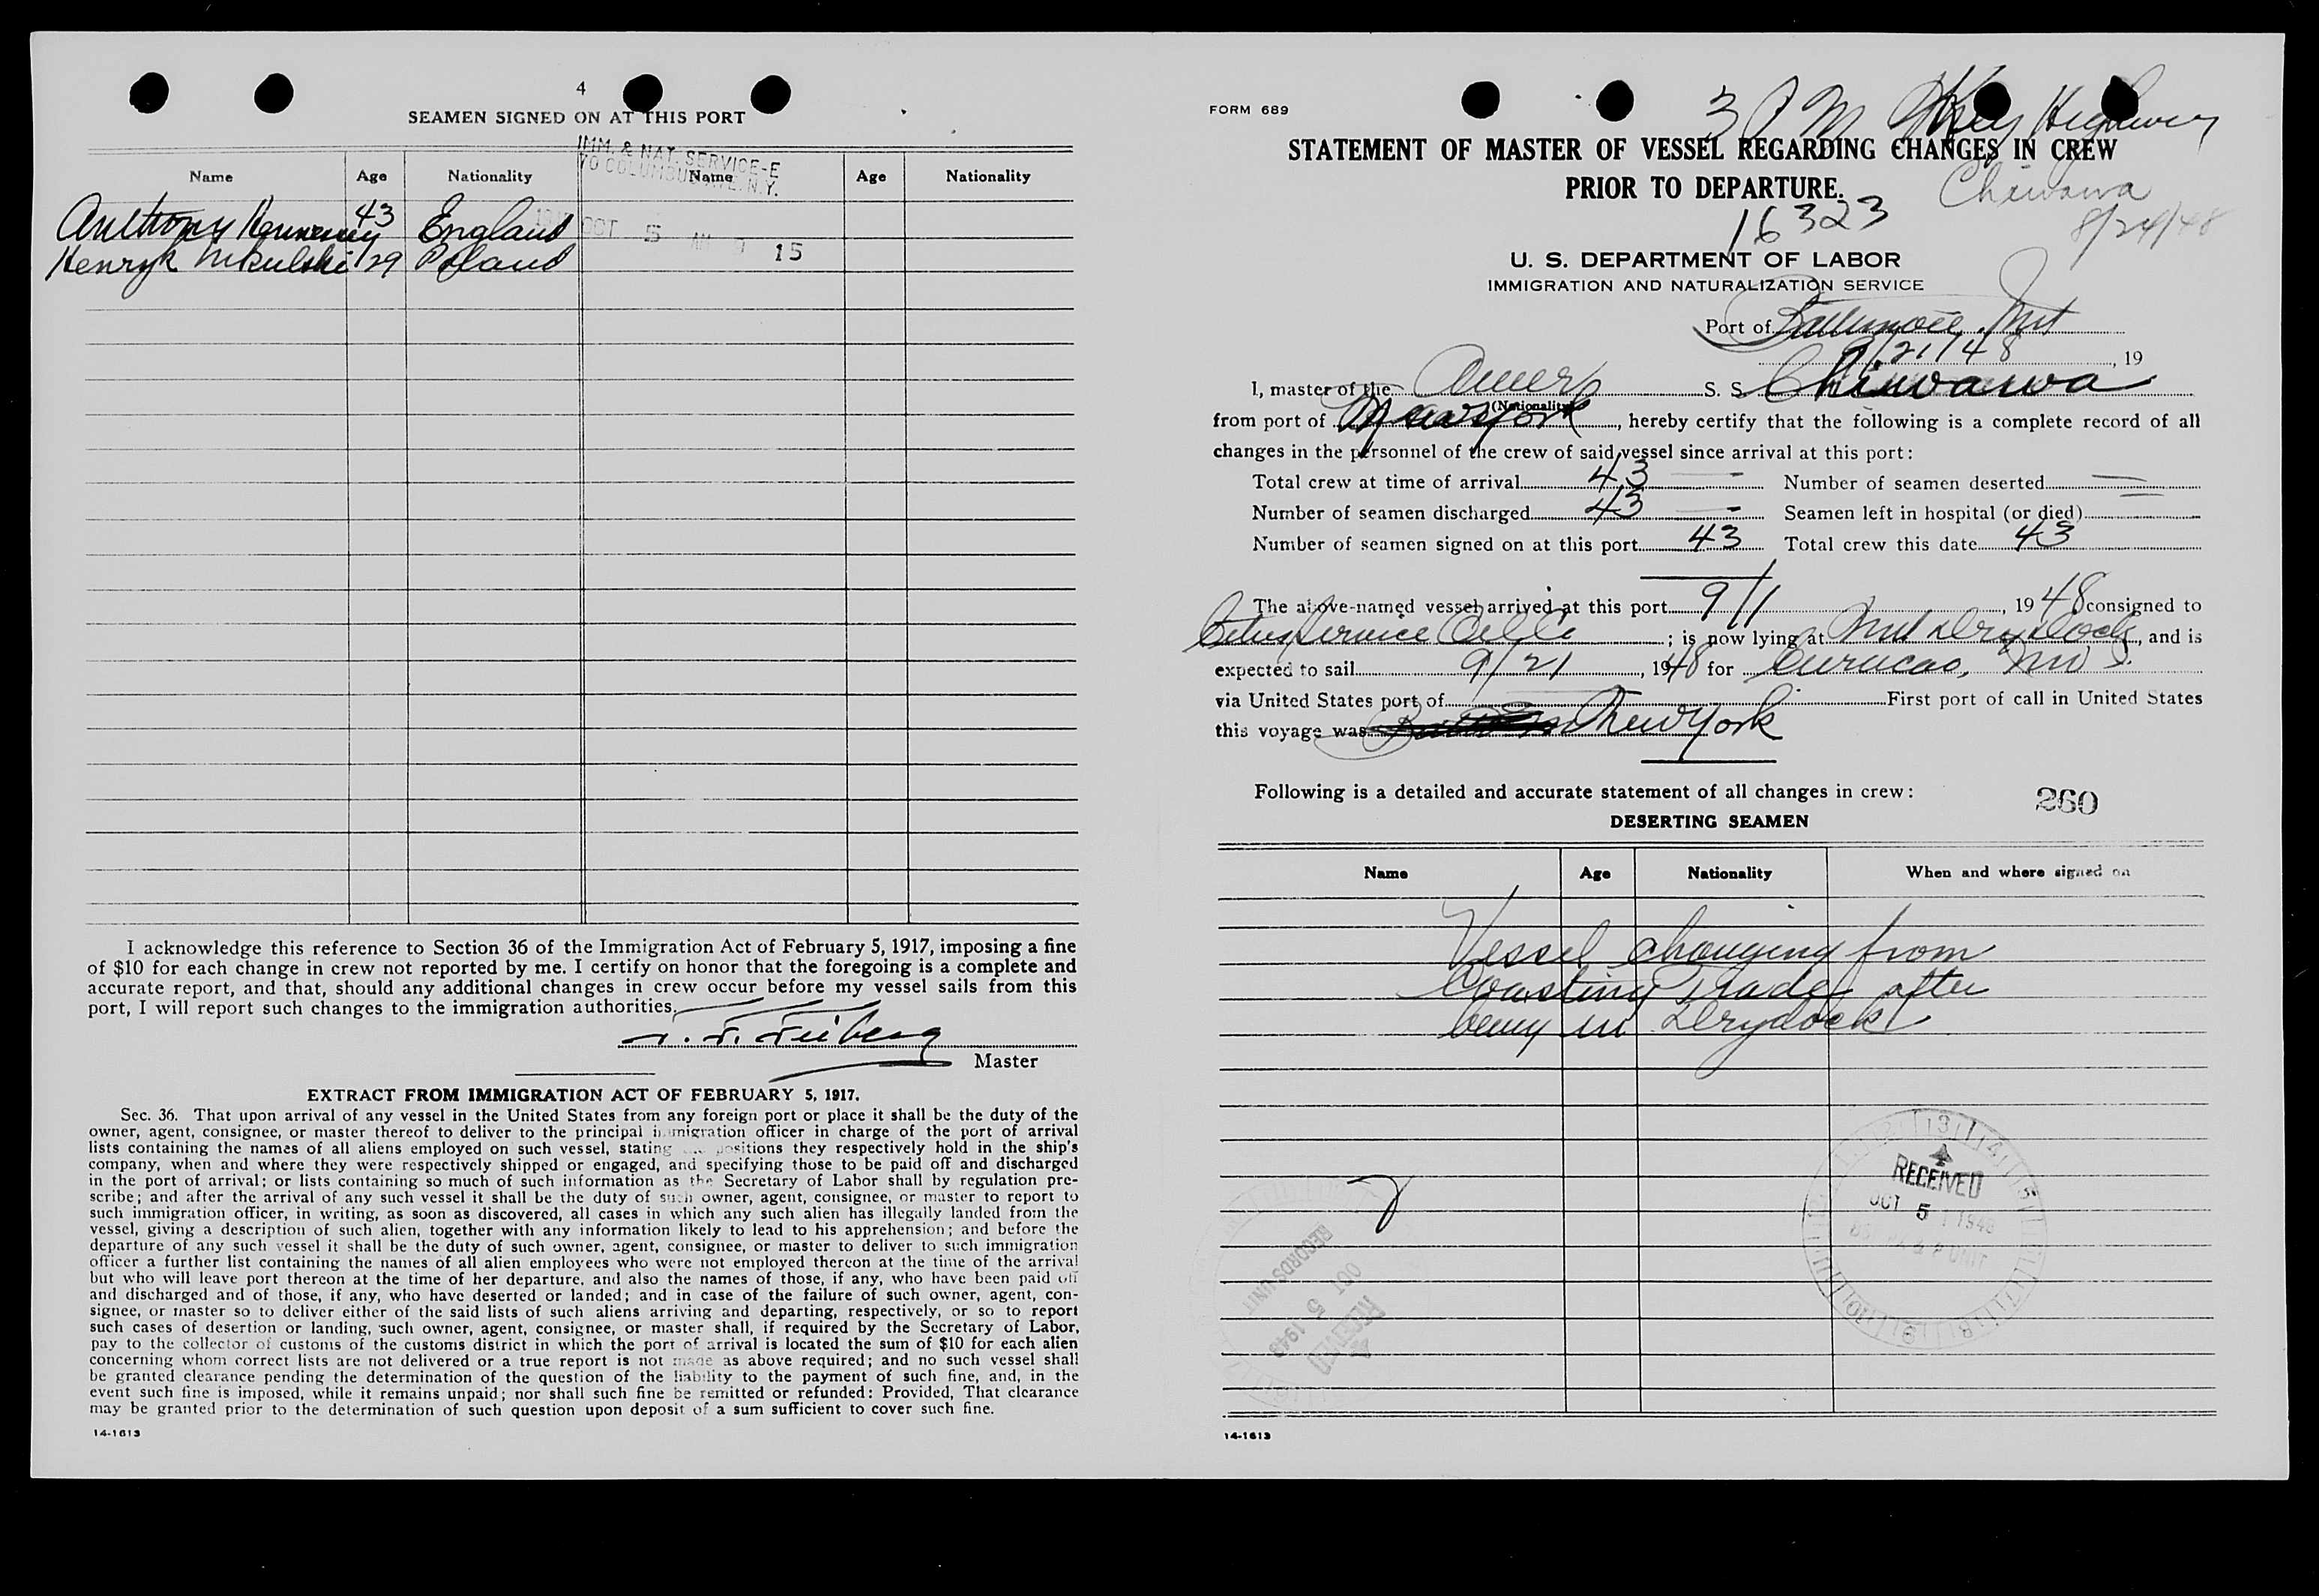 4
SEAMEN SIGNED ON AT THIS PORT
IMM. & NAT. SERVICE-E
70 COLUMBUS AVE. N.Y.
Name Age Nationality Name Age Nationality
OCT 5 AM 9 15
Anthony 43 England
Henryk 29 Poland
I acknowledge this reference to Section 36 of the Immigration Act of February 5, 1917, imposing a fine
of $10 for each change in crew not reported by me. I certify on honor that the foregoing is a complete and
accurate report, and that, should any additional changes in crew occur before my vessel sails from this
port, I will report such changes to the immigration authorities.
Master
EXTRACT FROM IMMIGRATION ACT OF FEBRUARY 5, 1917.
Sec. 36. That upon arrival of any vessel in the United States from any foreign port or place it shall be the duty of the
owner, agent, consignee, or master thereof to deliver to the principal immigration officer in charge of the port of arrival
lists containing the names of all aliens employed on such vessel, stating the positions they respectively hold in the ship's
company, when and where they were respectively shipped or engaged, and specifying those to be paid off and discharged
in the port of arrival; or lists containing so much of such information as the Secretary of Labor shall by regulation pre-
scribe; and after the arrival of any such vessel it shall be the duty of such owner, agent, consignee, or master to report to
such immigration officer, in writing, as soon as discovered, all cases in which any such alien has illegally landed from the
vessel, giving a description of such alien, together with any information likely to lead to his apprehension; and before the
departure of any such vessel it shall be the duty of such owner, agent, consignee, or master to deliver to such immigration
officer a further list containing the names of all alien employees who were not employed thereon at the time of the arrival
but who will leave port thereon at the time of her departure, and also the names of those, if any, who have been paid off
and discharged and of those, if any, who have deserted or landed; and in case of the failure of such owner, agent, con-
signee, or master so to deliver either of the said lists of such aliens arriving and departing, respectively, or so to report
such cases of desertion or landing, such owner, agent, consignee, or master shall, if required by the Secretary of Labor,
pay to the collector of customs of the customs district in which the port of arrival is located the sum of $10 for each alien
concerning whom correct lists are not delivered or a true report is not made as above required; and no such vessel shall
be granted clearance pending the determination of the question of the liability to the payment of such fine, and, in the
event such fine is imposed, while it remains unpaid; nor shall such fine be remitted or refunded: Provided, That clearance
may be granted prior to the determination of such question upon deposit of a sum sufficient to cover such fine.
14-1613
3 P M Key Highway
FORM 689
STATEMENT OF MASTER OF VESSEL REGARDING CHANGES IN CREW
PRIOR TO DEPARTURE.
Chiwawa
16323
8/24/48
U. S. DEPARTMENT OF LABOR
IMMIGRATION AND NATURALIZATION SERVICE
Port of Baltimore, Md
9/21/48, 19
I, master of the Amer S. S. Chiwawa
(Nationality)
from port of New York, hereby certify that the following is a complete record of all
changes in the personnel of the crew of said vessel since arrival at this port:
Total crew at time of arrival 43 — Number of seamen deserted —
Number of seamen discharged 43 — Seamen left in hospital (or died) —
Number of seamen signed on at this port 43 Total crew this date 43
The above-named vessel arrived at this port 9/1, 1948 consigned to
Cities Service Oil Co; is now lying at Md Drydock, and is
expected to sail 9/21, 1948 for Curacao, N W I.
via United States port of First port of call in United States
this voyage was New York
Following is a detailed and accurate statement of all changes in crew:
260
DESERTING SEAMEN
Name Age Nationality When and where signed on
Vessel changing from
Coasting Trade after
being in Drydock
RECEIVED
OCT 5 1948
RECORDS UNIT
OCT 5 1948
RECEIVED
14-1613